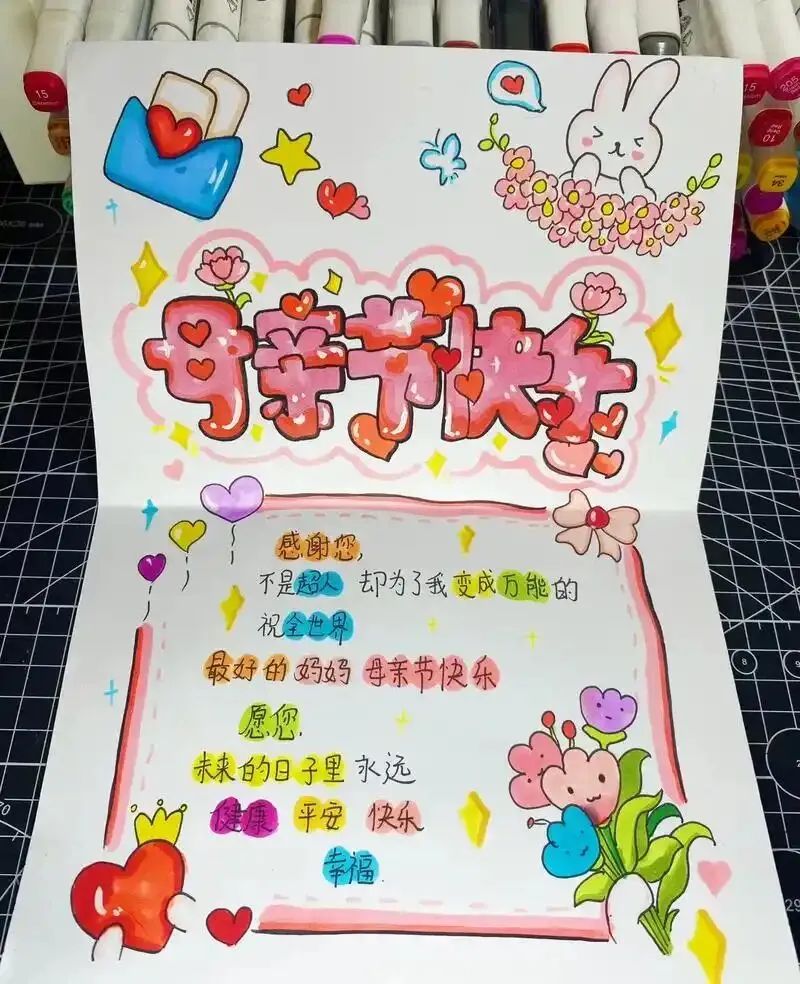 母亲节快乐
感谢您,
不是超人 却为了我变成万能的
祝全世界
最好的妈妈 母亲节快乐
愿您.
未来的日子里 永远
健康 平安 快乐
幸福.
15
15
10
34
205